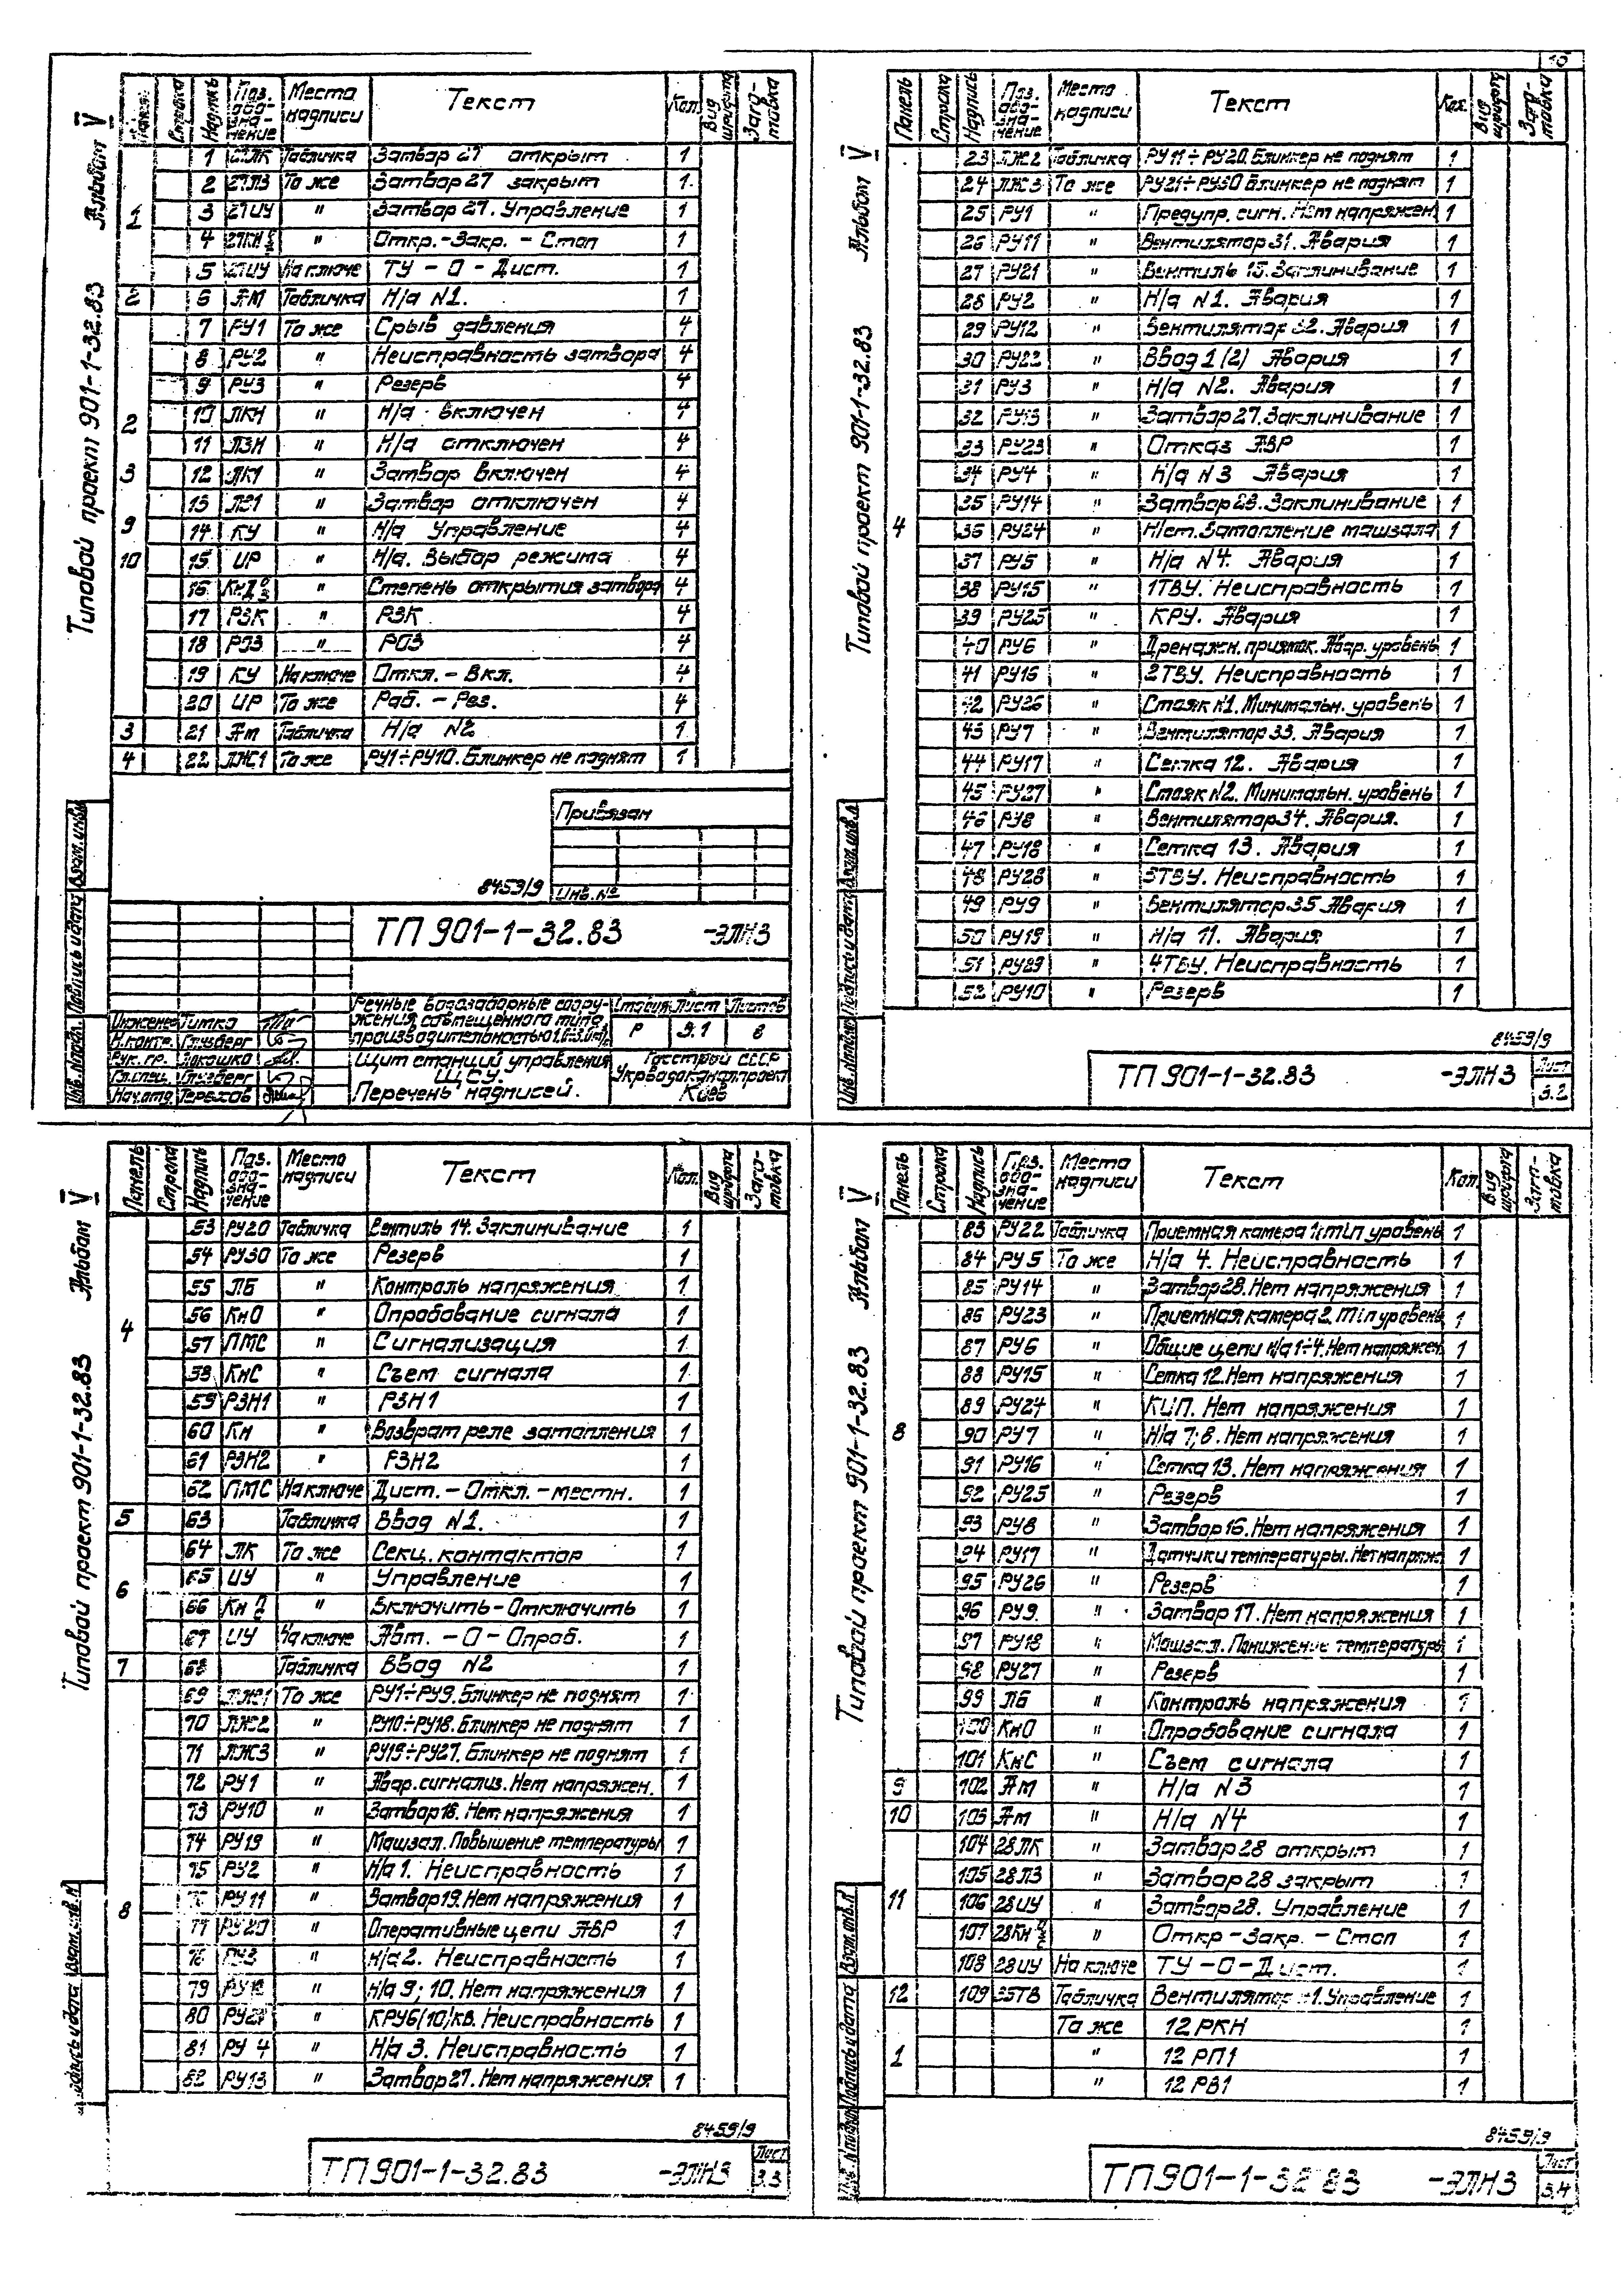 10
Альбом V
Типовой проект 901-1-32.83
Панель Строка Надпись Поз. обо- зна- чение Место надписи Текст Кол. Вид шрифта Заго- товка
1
1 27ЛК Табличка Затвор 27 открыт 1
2 27ЛЗ То же Затвор 27 закрыт 1
3 27ИУ " Затвор 27. Управление 1
4 27КН " Откр.-Закр. - Стоп 1
5 27ИУ На ключе ТУ - О - Дист. 1
2 6 Ам Табличка Н/а N1. 1
7 РУ1 То же Срыв давления 4
8 РУ2 " Неисправность затвора 4
9 РУ3 " Резерв 4
2 10 ЛКН " Н/а включен 4
11 ЛЗН " Н/а отключен 4
3 12 ЛК1 " Затвор включен 4
13 ЛЗ1 " Затвор отключен 4
9 14 КУ " Н/а Управление 4
10 15 ИР " Н/а. Выбор режима 4
16 " Степень открытия затвора 4
17 РЗК " РЗК 4
18 РОЗ " РОЗ 4
19 КУ На ключе Откл. - Вкл. 4
20 ИР То же Раб. - Рез. 4
3 21 Ам Табличка Н/а N2 1
4 22 ЛЖ1 То же РУ1÷РУ10. Блинкер не поднят 1
Привязан
Инв. №
8459/9
ТП 901-1-32.83 -ЭЛНЗ
Речные водозаборные соору-
жения совмещенного типа
производительностью
Стадия Лист Листов
Р 3.1 8
Щит станций управления
ЩСУ.
Перечень надписей.
Госстрой СССР
Укрводоканалпроект
Киев
Инженер Титко
Н.контр. Глузберг
Рук. гр. Локошко
Гл.спец. Глузберг
Нач.отд. Терехов
Инв. № подл. Подпись и дата Взам. инв. №
Альбом V
Типовой проект 901-1-32.83
Панель Строка Надпись Поз. обо- зна- чение Место надписи Текст Кол. Вид шрифта Заго- товка
23 ЛЖ2 Табличка РУ11÷РУ20. Блинкер не поднят 1
24 ЛЖ3 То же РУ21÷РУ30 Блинкер не поднят 1
25 РУ1 " Предупр. сигн. Нет напряжен 1
26 РУ11 " Вентилятор 31. Авария 1
27 РУ21 " Вентиль 15. Заклинивание 1
28 РУ2 " Н/а N1. Авария 1
29 РУ12 " Вентилятор 32. Авария 1
30 РУ22 " Ввод 1 (2) Авария 1
31 РУ3 " Н/а N2. Авария 1
32 РУ13 " Затвор 27. Заклинивание 1
33 РУ23 " Отказ АВР 1
34 РУ4 " Н/а N3 Авария 1
35 РУ14 " Затвор 28. Заклинивание 1
4 36 РУ24 " Н/ст. Затопление машзала 1
37 РУ5 " Н/а N4. Авария 1
38 РУ15 " 1ТВУ. Неисправность 1
39 РУ25 " КРУ. Авария 1
40 РУ6 " Дренажн. приямок. Авар. уровень 1
41 РУ16 " 2ТВУ. Неисправность 1
42 РУ26 " Стояк N1. Минимальн. уровень 1
43 РУ7 " Вентилятор 33. Авария 1
44 РУ17 " Сетка 12. Авария 1
45 РУ27 " Стояк N2. Минимальн. уровень 1
46 РУ8 " Вентилятор 34. Авария. 1
47 РУ18 " Сетка 13. Авария 1
48 РУ28 " 3ТВУ. Неисправность 1
49 РУ9 " Вентилятор 35 Авария 1
50 РУ19 " Н/а 11. Авария 1
51 РУ29 " 4ТВУ. Неисправность 1
52 РУ10 " Резерв 1
8459/9
ТП 901-1-32.83 -ЭЛНЗ Лист 3.2
Подпись и дата Взам. инв. №
Альбом V
Типовой проект 901-1-32.83
Панель Строка Надпись Поз. обо- зна- чение Место надписи Текст Кол. Вид шрифта Заго- товка
53 РУ20 Табличка Вентиль 14. Заклинивание 1
54 РУ30 То же Резерв 1
55 ЛБ " Контроль напряжения 1
56 КнО " Опробование сигнала 1
4 57 ПМС " Сигнализация 1
58 КнС " Съем сигнала 1
59 РЗН1 " РЗН1 1
60 Кн " Возврат реле затопления 1
61 РЗН2 " РЗН2 1
62 ПМС На ключе Дист. - Откл. - местн. 1
5 63 Табличка Ввод N1. 1
64 ЛК То же Секц. контактор 1
65 ИУ " Управление 1
6 66 Кн " Включить-Отключить 1
67 ИУ На ключе Авт. - О - Опроб. 1
7 68 Табличка Ввод N2 1
69 ЛЖ1 То же РУ1÷РУ9. Блинкер не поднят 1
70 ЛЖ2 " РУ10÷РУ18. Блинкер не поднят 1
71 ЛЖ3 " РУ19÷РУ27. Блинкер не поднят 1
72 РУ1 " Авар. сигнализ. Нет напряжен. 1
73 РУ10 " Затвор 18. Нет напряжения 1
74 РУ19 " Машзал. Повышение температуры 1
75 РУ2 " Н/а 1. Неисправность 1
8 76 РУ11 " Затвор 19. Нет напряжения 1
77 РУ20 " Оперативные цепи АВР 1
78 РУ3 " Н/а 2. Неисправность 1
79 РУ12 " Н/а 9; 10. Нет напряжения 1
80 РУ21 " КРУ6(10)кв. Неисправность 1
81 РУ 4 " Н/а 3. Неисправность 1
82 РУ13 " Затвор 27. Нет напряжения 1
8459/9
ТП 901-1-32.83 -ЭЛНЗ Лист 3.3
Подпись и дата Взам. инв. №
Альбом V
Типовой проект 901-1-32.83
Панель Строка Надпись Поз. обо- зна- чение Место надписи Текст Кол. Вид шрифта Заго- товка
83 РУ22 Табличка Приемная камера 1. min уровень 1
84 РУ5 То же Н/а 4. Неисправность 1
85 РУ14 " Затвор 28. Нет напряжения 1
86 РУ23 " Приемная камера 2. min уровень 1
87 РУ6 " Общие цепи н/а 1÷4. Нет напряжен 1
88 РУ15 " Сетка 12. Нет напряжения 1
89 РУ24 " КИП. Нет напряжения 1
8 90 РУ7 " Н/а 7; 8. Нет напряжения 1
91 РУ16 " Сетка 13. Нет напряжения 1
92 РУ25 " Резерв 1
93 РУ8 " Затвор 16. Нет напряжения 1
94 РУ17 " Датчики температуры. Нет напряж. 1
95 РУ26 " Резерв 1
96 РУ9. " Затвор 17. Нет напряжения 1
97 РУ18 " Машзал. Понижение температуры 1
98 РУ27 " Резерв 1
99 ЛБ " Контроль напряжения 1
100 КнО " Опробование сигнала 1
101 КнС " Съем сигнала 1
9 102 Ам " Н/а N3 1
10 103 Ам " Н/а N4 1
104 28ЛК " Затвор 28 открыт 1
105 28ЛЗ " Затвор 28 закрыт 1
11 106 28ИУ " Затвор 28. Управление 1
107 28Кн " Откр - Закр. - Стоп 1
108 28ИУ На ключе ТУ - О - Дист. 1
12 109 35ТВ Табличка Вентилятор Управление 1
То же 12 РКН 1
1 " 12 РП1 1
" 12 РВ1 1
8459/9
ТП 901-1-32.83 -ЭЛНЗ Лист 3.4
Подпись и дата Взам. инв. №